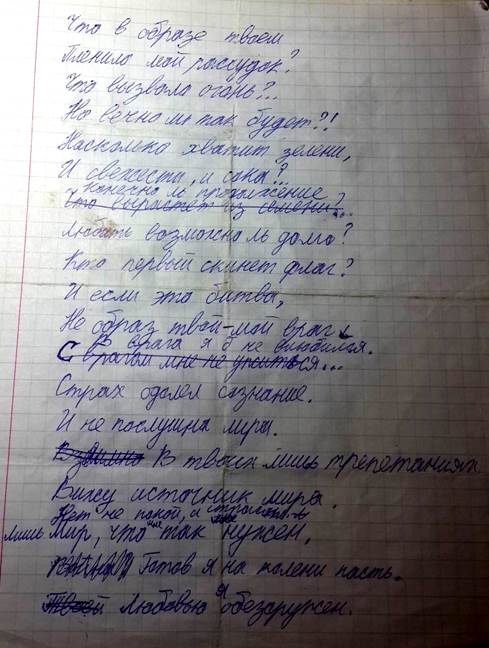 Что в образе твоем
Пленило мой рассудок?
Что вызвало огонь?..
Но вечно ль так будет?!
Насколько хватит зелени,
И свежести, и сока?
конечно ль продолжение
Что вырастет из семени?...
Любить возможно ль долго?
Кто первый скинет флаг?
И если это битва,
Не образ твой-мой враг
В врага я б не влюбился.
С врагом мне не ужиться...
Страх одолел сознание.
И не послушна лира.
Взаимно В твоих лишь трепетаниях
Вижу источник мира.
Нет не покой, и
лишь мир, что мне так нужен,
Готов я на колени пасть.
Твоей Любовью я обезаружен.